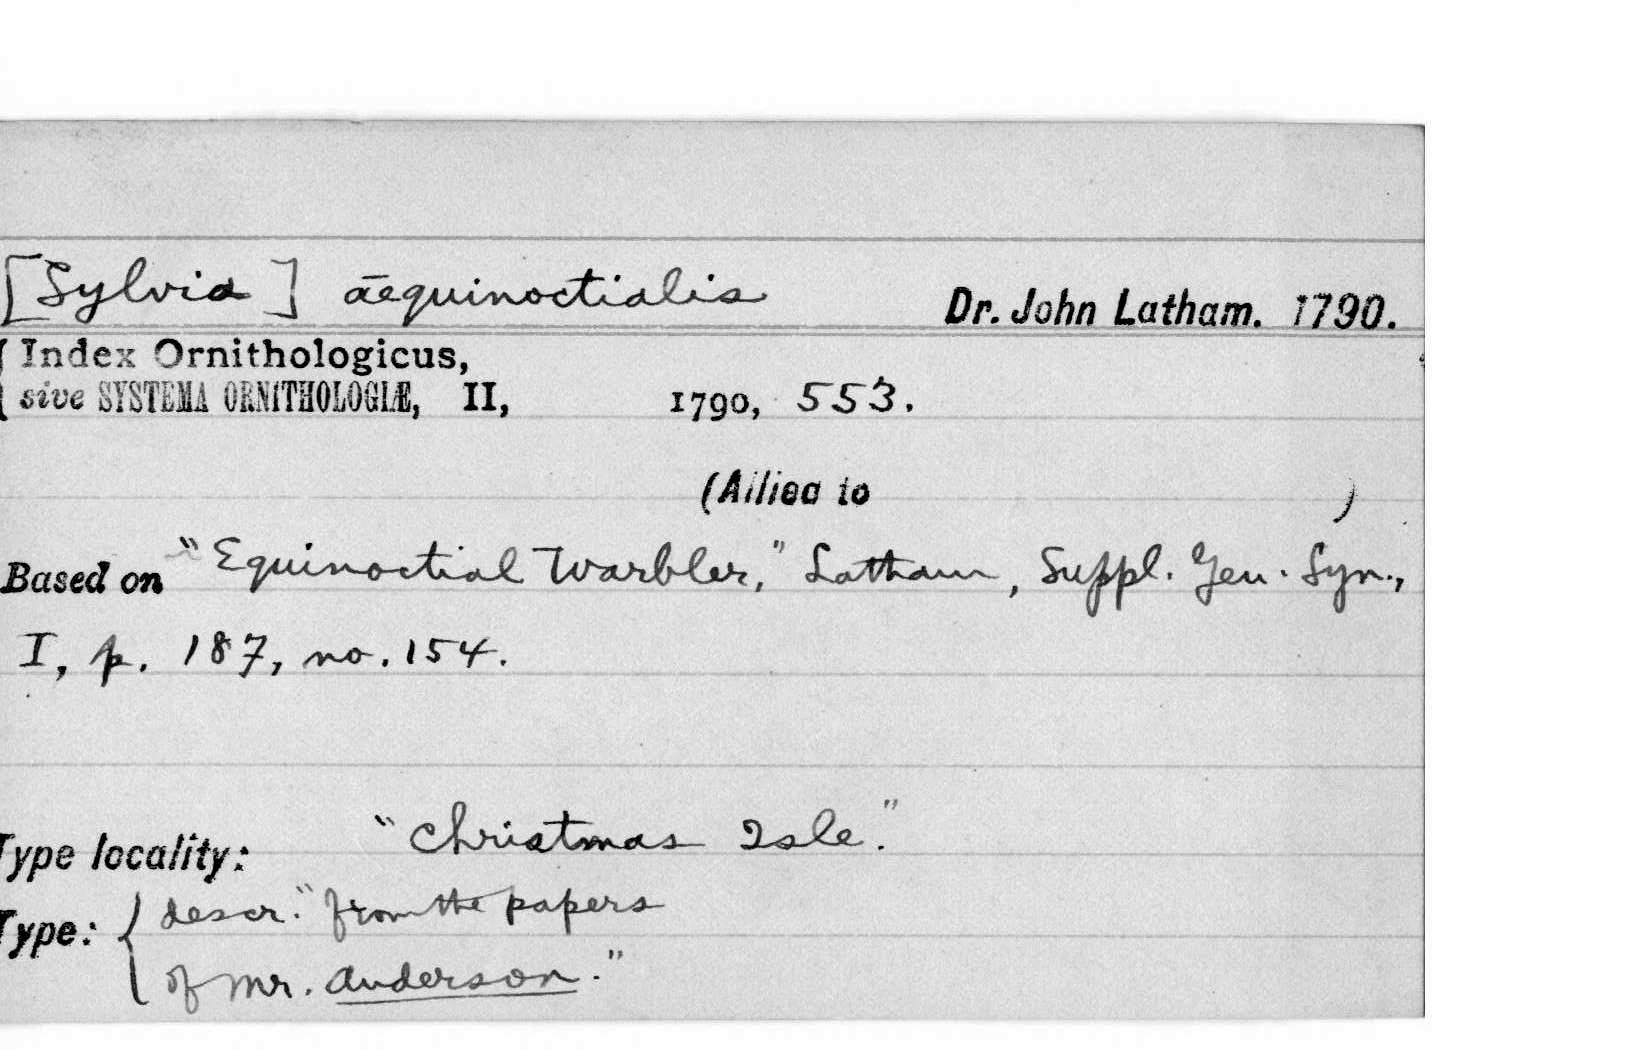 [Sylvia] āequinoctialis Dr. John Latham. 1790.
Index Ornithologicus,
sive SYSTEMA ORNITHOLOGIÆ, II, 1790, 553.
(Allied to )
Based on "Equinoctial Warbler," Latham, Suppl. Gen. Syn.,
I, p. 187, no. 154.
Type locality: "Christmas Isle."
Type: { descr. "from the papers
of Mr. Anderson."